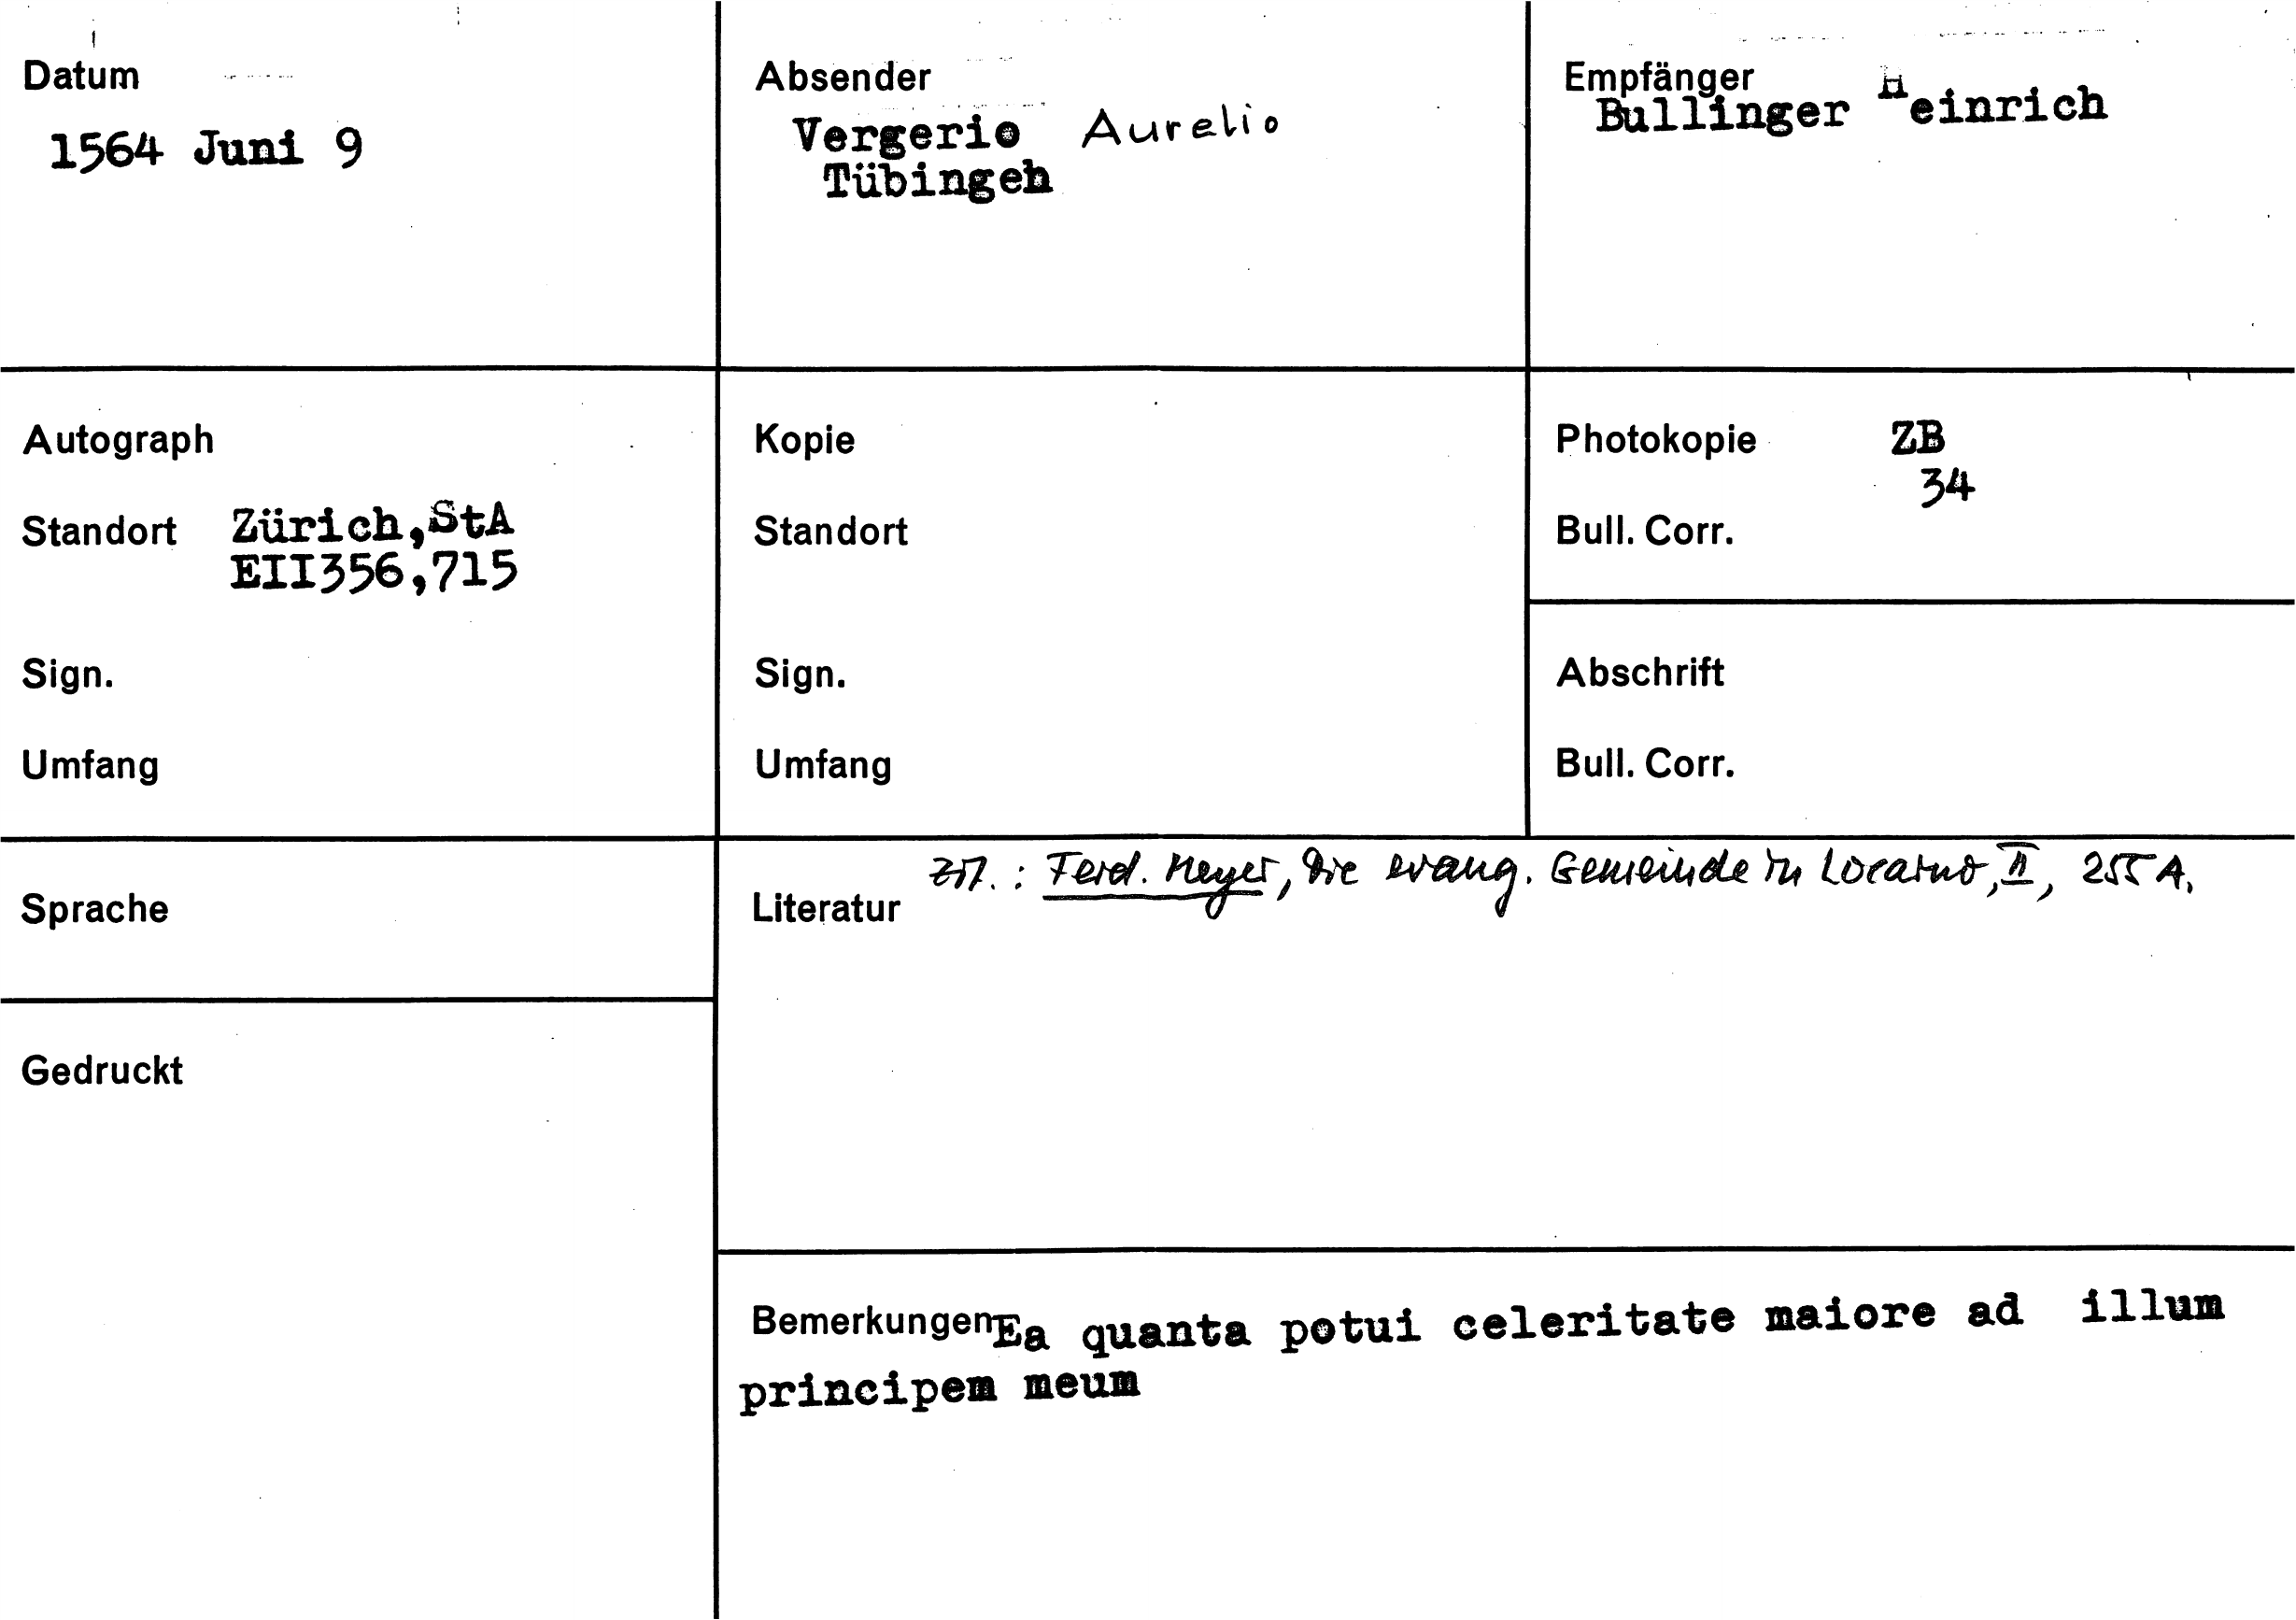 Datum
1564 Juni 9
Absender
Vergerio Aurelio
Tübingen
Empfänger
Bullinger Heinrich
Autograph
Standort Zürich,StA
EII356,715
Sign.
Umfang
Kopie
Standort
Sign.
Umfang
Photokopie ZB
34
Bull. Corr.
Abschrift
Bull. Corr.
Sprache
Gedruckt
Literatur Zit.: Ferd. Meyer, Die evang. Gemeinde in Locarno, II, 255 A.
Bemerkungen Ea quanta potui celeritate maiore ad illum
principem meum